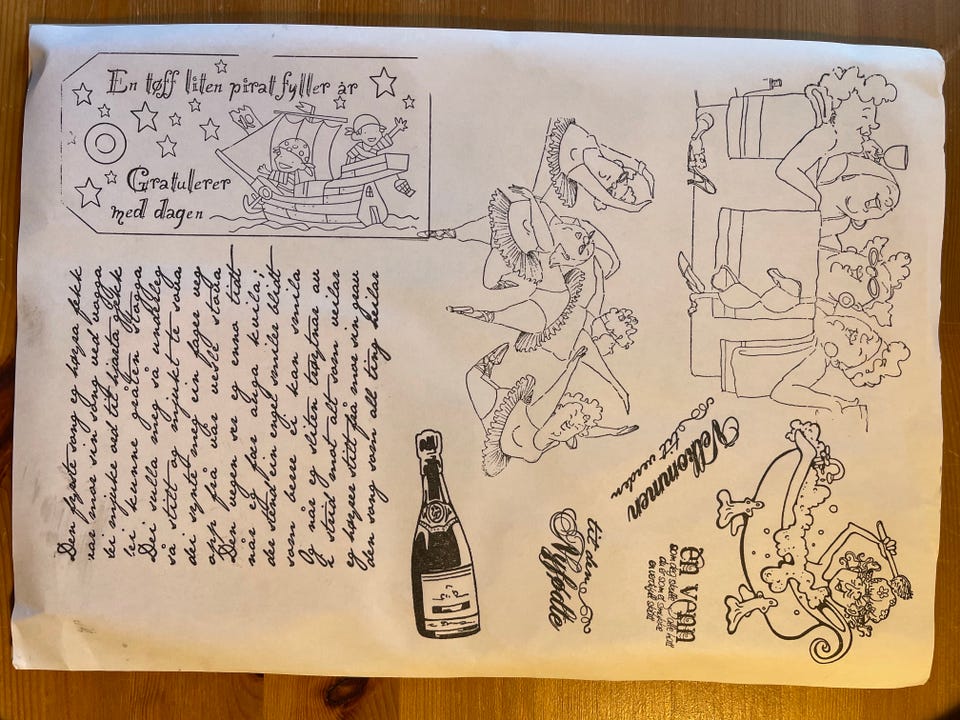 En tøff liten pirat fyller år
Gratulerer
med dagen
Den fyrste song eg høyra fekk
var mor sin song ved vogga
dei mjuke ord til hjarta gjekk
dei kunne gråten stogga
Dei sulla meg så underleg
så stilt og mjukt te sova
dei synte meg ein fager veg
opp frå vår vesle stova
Den vegen ser eg enno tidt
når eg fær auga kvila;
der stend ein engel smiler blidt
som berre ei kan smila
Og når eg sliten trøytnar av
i strid mot alt som veilar
eg høyrer stilt frå mor sin grav
den song som all ting heilar
Velkommen
til verden
til den
Nyfødte
En venn